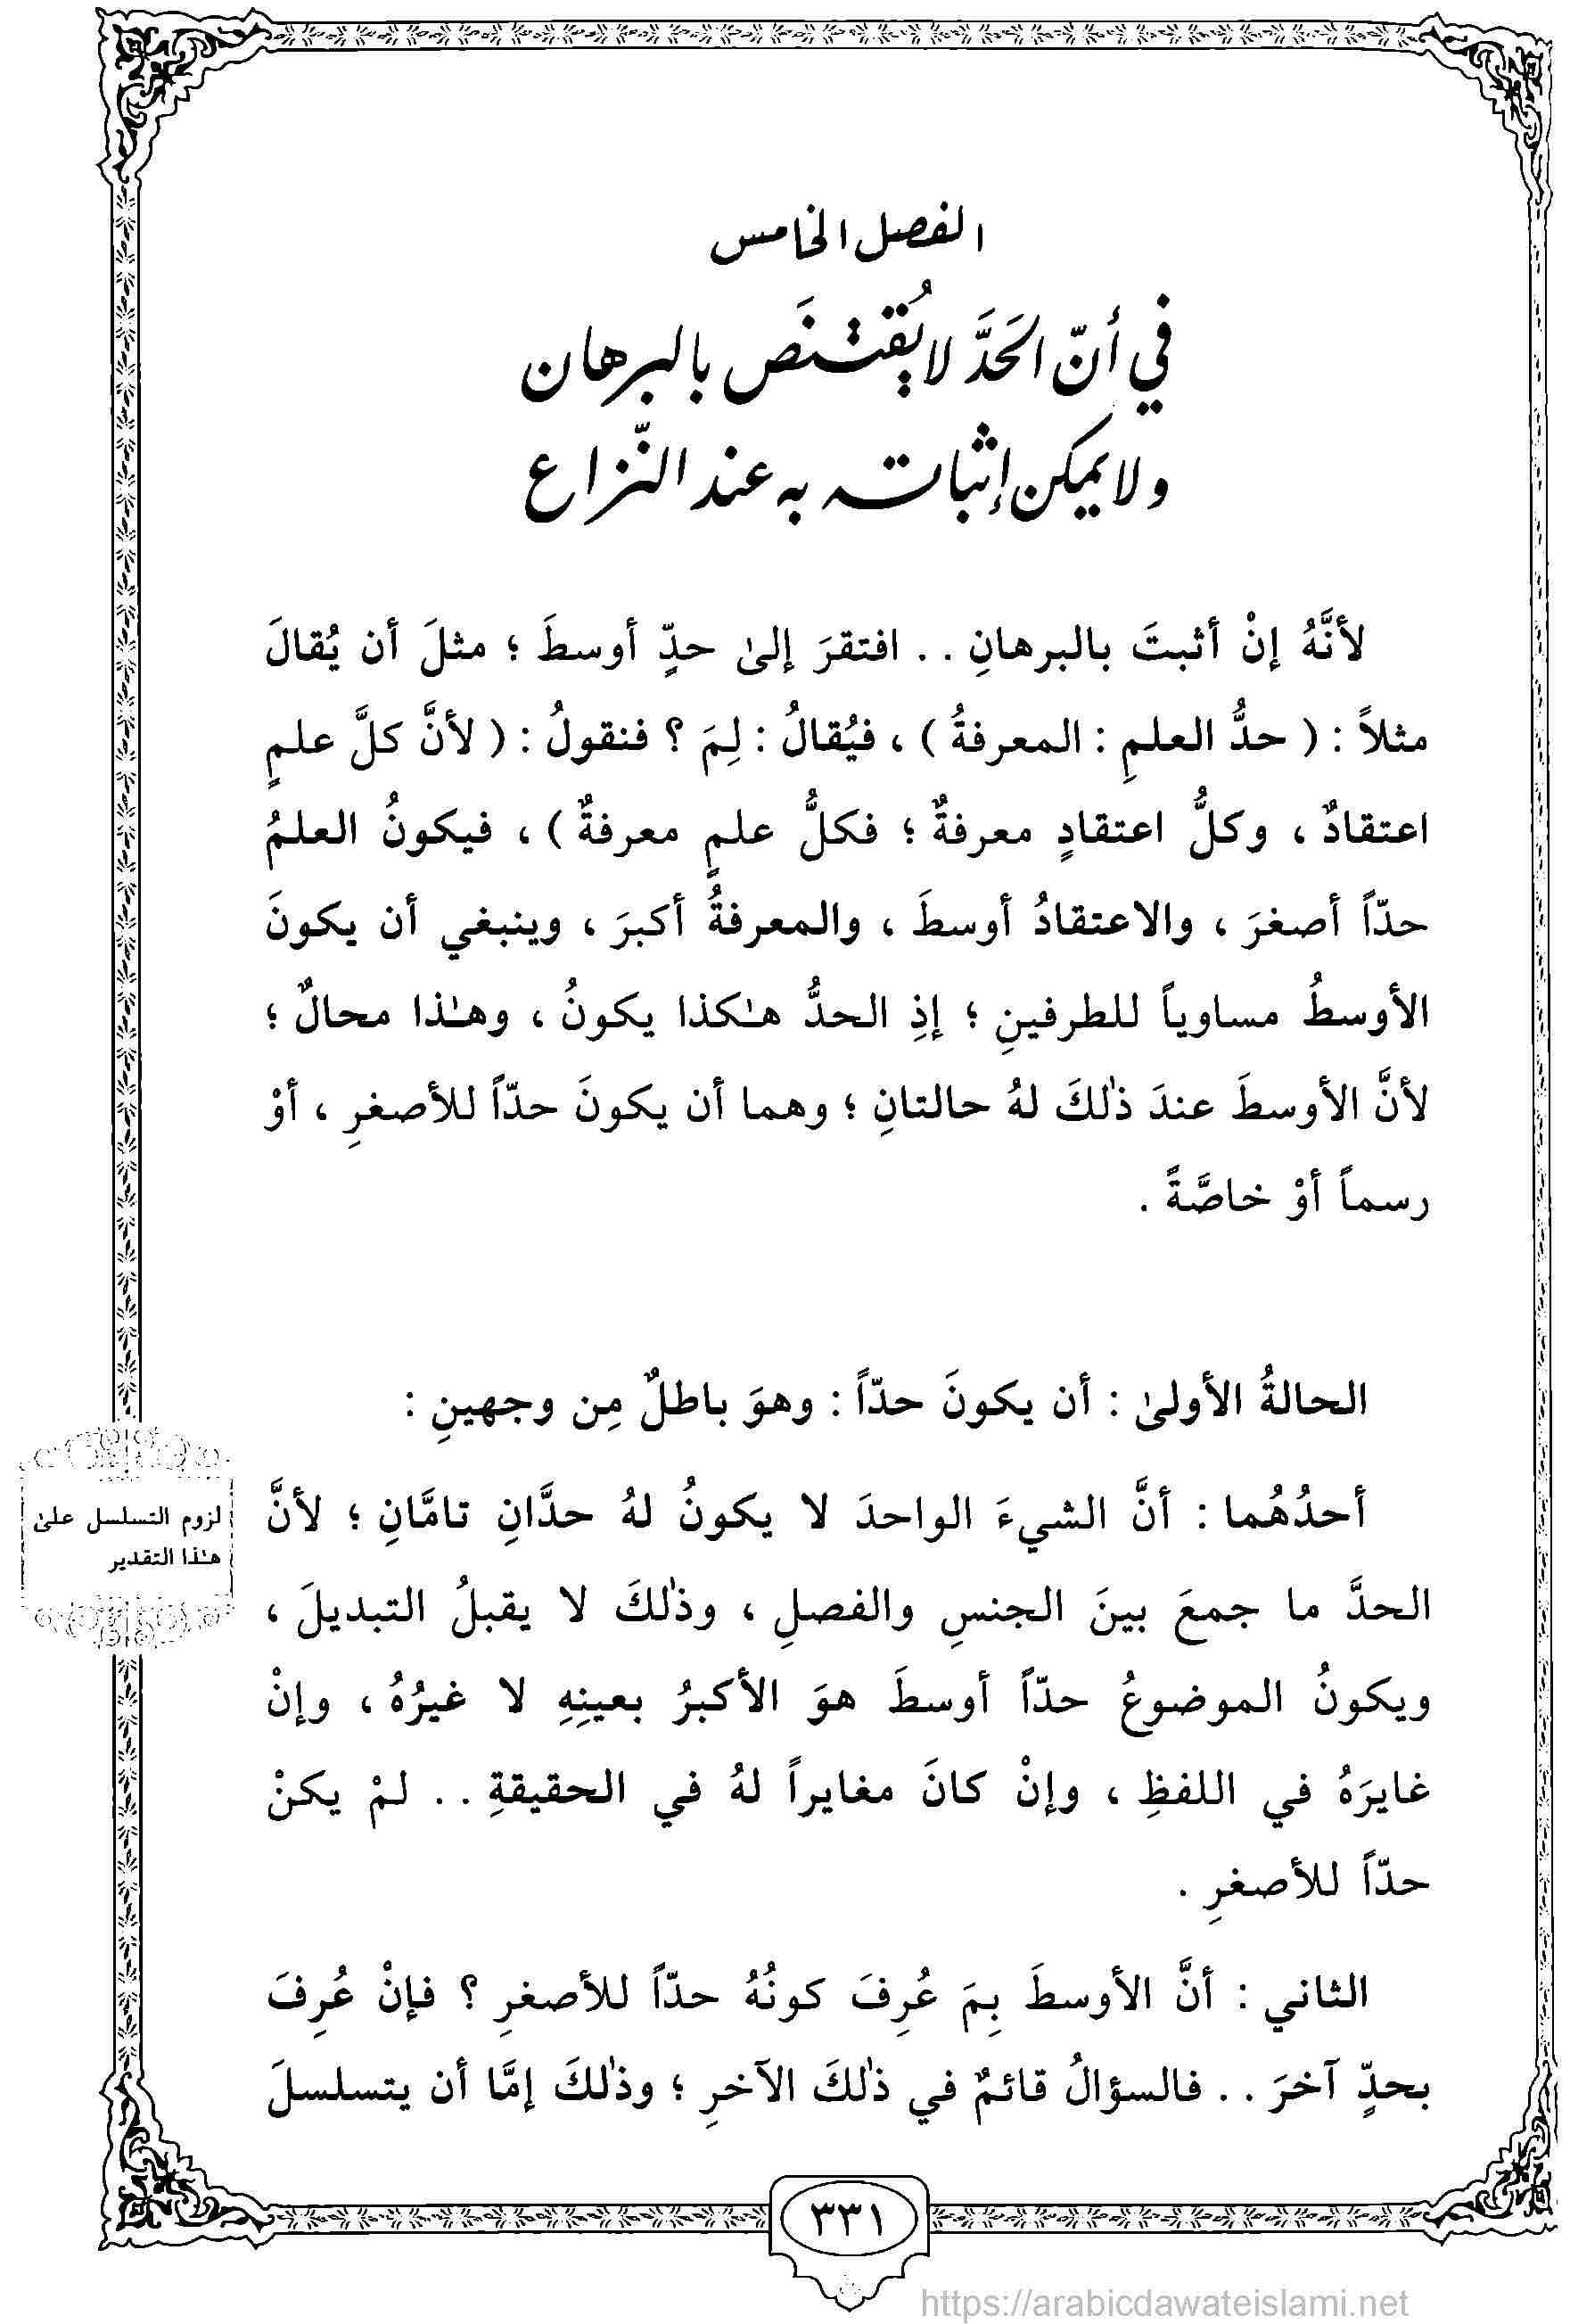 الفصل الخامس
في أنّ الحَدَّ لا يُقتنَص بالبرهان
ولا يمكن إثباته به عند النّزاع
لأنَّهُ إنْ أثبتَ بالبرهانِ . . افتقرَ إلىٰ حدٍّ أوسطَ ؛ مثلَ أن يُقالَ
مثلاً : ( حدُّ العلمِ : المعرفةُ ) ، فيُقالُ : لِمَ ؟ فنقولُ : ( لأنَّ كلَّ علمٍ
اعتقادٌ ، وكلُّ اعتقادٍ معرفةٌ ؛ فكلُّ علمٍ معرفةٌ ) ، فيكونُ العلمُ
حدّاً أصغرَ ، والاعتقادُ أوسطَ ، والمعرفةُ أكبرَ ، وينبغي أن يكونَ
الأوسطُ مساوياً للطرفينِ ؛ إذِ الحدُّ هـٰكذا يكونُ ، وهـٰذا محالٌ ؛
لأنَّ الأوسطَ عندَ ذٰلكَ لهُ حالتانِ ؛ وهما أن يكونَ حدّاً للأصغرِ ، أوْ
رسماً أوْ خاصَّةً .
الحالةُ الأولىٰ : أن يكونَ حدّاً : وهوَ باطلٌ مِن وجهينِ :
لزوم التسلسل علىٰ
هـٰذا التقدير
أحدُهُما : أنَّ الشيءَ الواحدَ لا يكونُ لهُ حدَّانِ تامَّانِ ؛ لأنَّ
الحدَّ ما جمعَ بينَ الجنسِ والفصلِ ، وذٰلكَ لا يقبلُ التبديلَ ،
ويكونُ الموضوعُ حدّاً أوسطَ هوَ الأكبرُ بعينِهِ لا غيرُهُ ، وإنْ
غايرَهُ في اللفظِ ، وإنْ كانَ مغايراً لهُ في الحقيقةِ . . لمْ يكنْ
حدّاً للأصغرِ .
الثاني : أنَّ الأوسطَ بِمَ عُرِفَ كونُهُ حدّاً للأصغرِ ؟ فإنْ عُرِفَ
بحدٍّ آخرَ . . فالسؤالُ قائمٌ في ذٰلكَ الآخرِ ؛ وذٰلكَ إمَّا أن يتسلسلَ
٣٣١
https://arabicdawateislami.net